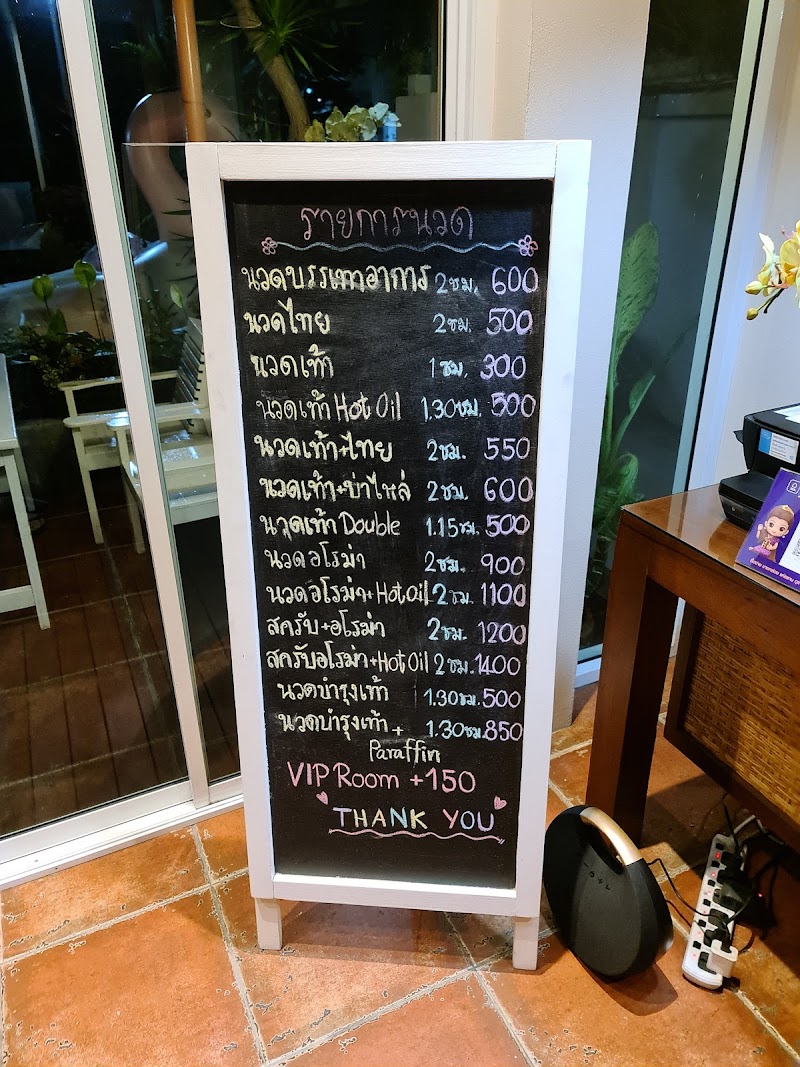 รายการนวด
นวดบรรเทาอาการ 2 ชม. 600
นวดไทย 2 ชม. 500
นวดเท้า 1 ชม. 300
นวดเท้า Hot Oil 1.30 ชม. 500
นวดเท้า+ไทย 2 ชม. 550
นวดเท้า+บ่าไหล่ 2 ชม. 600
นวดเท้า Double 1.15 ชม. 500
นวดอโรม่า 2 ชม. 900
นวดอโรม่า+Hot Oil 2 ชม. 1100
สครับ+อโรม่า 2 ชม. 1200
สครับอโรม่า+Hot Oil 2 ชม. 1400
นวดบำรุงเท้า 1.30 ชม. 500
นวดบำรุงเท้า + 1.30 ชม. 850
Paraffin
VIP Room +150
THANK YOU